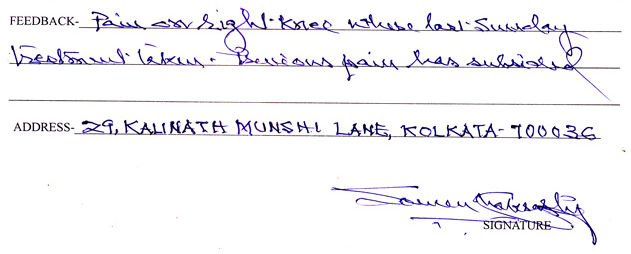 FEEDBACK- Pain on right knee where last Sunday
treatment taken. Previous pain has subsided
ADDRESS- 29, KALINATH MUNSHI LANE, KOLKATA-700036
SIGNATURE